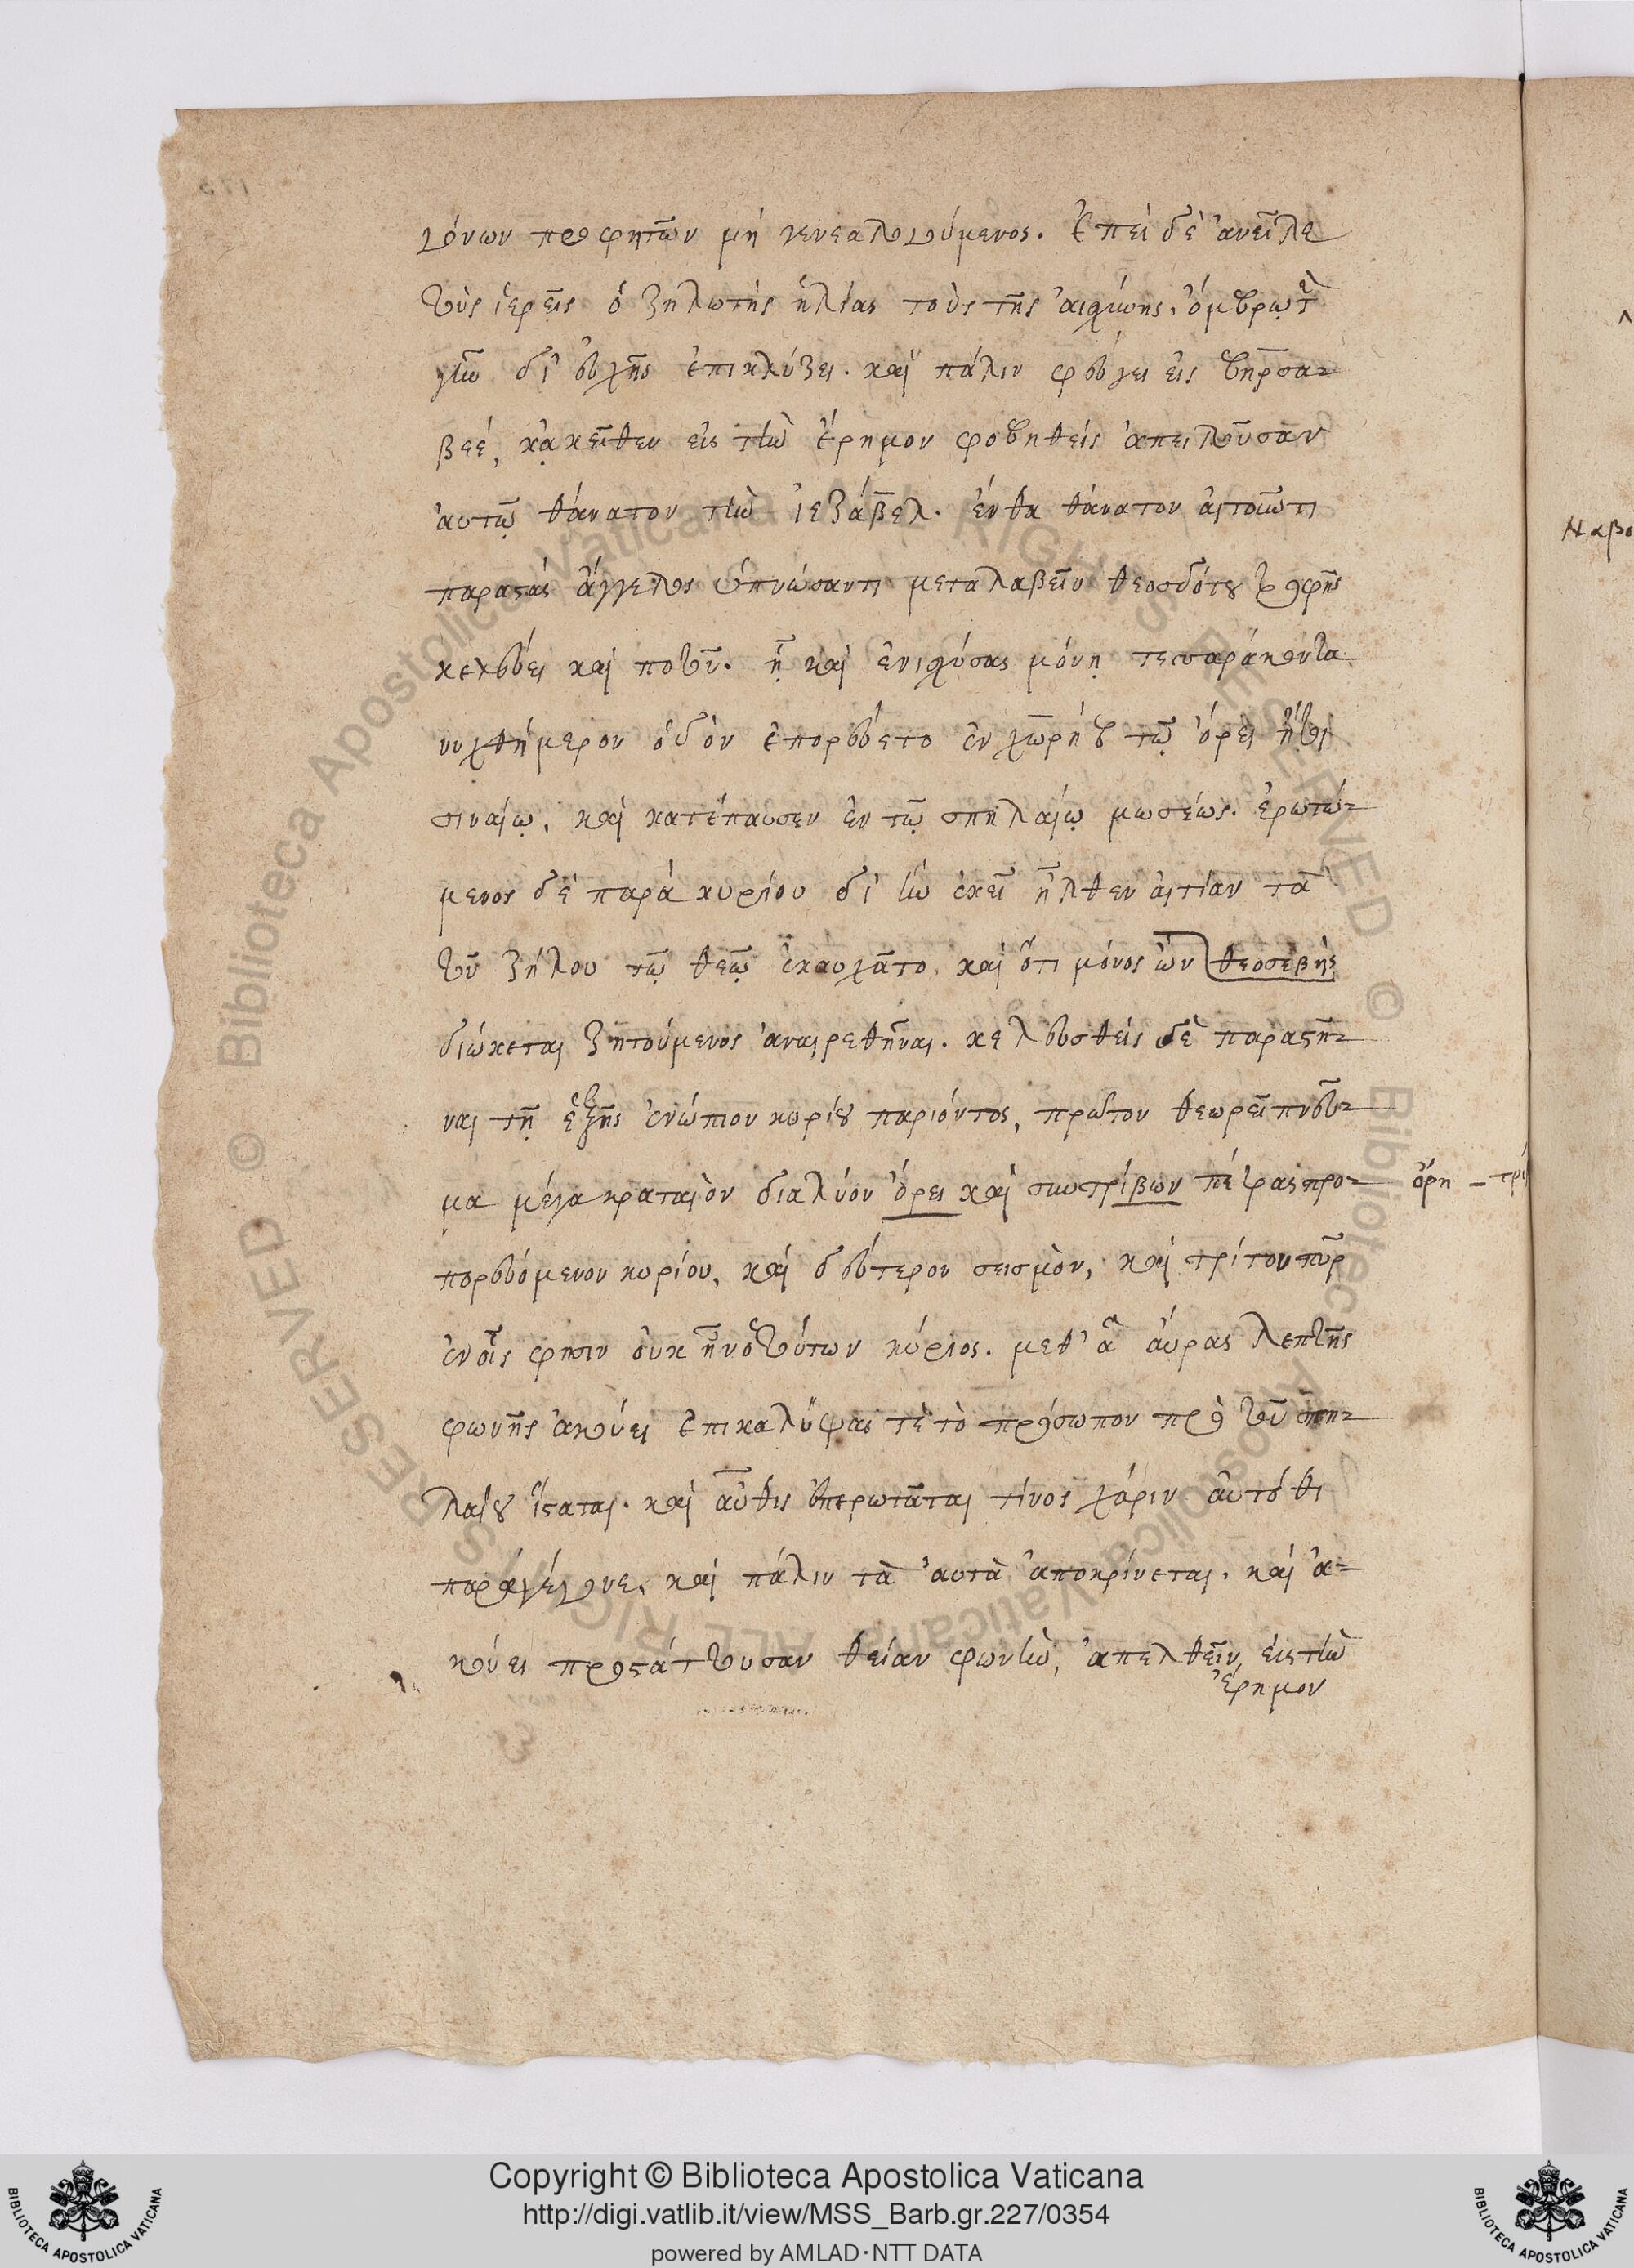 γόνων προφητῶν μὴ γενεαλογούμενος. ἐπεὶ δὲ ἀνεῖλε
τοὺς ἱερεῖς ὁ ζηλωτὴς ἠλίας τοὺς τῆς αἰσχύνης, ὄμβρῳ τὴν
γῆν δι' εὐχῆς ἐπικλύζει. καὶ πάλιν φεύγει εἰς βηρσα-
βεέ, κᾀκεῖθεν εἰς τὴν ἔρημον φοβηθεὶς ἀπειλοῦσαν
αὐτῷ θάνατον τὴν ἰεζάβελ. ἔνθα θάνατον αἰτοῦντι
παραστὰς ἄγγελος ὑπνώσαντι μεταλαβεῖν θεοσδότου τροφῆς
κελεύει καὶ ποτοῦ. ᾗ καὶ ἐνισχύσας μόνῃ τεσσαράκοντα
νυχθήμερον ὁδὸν ἐπορεύετο ἐν χωρὴβ τῷ ὄρει ἤτοι
σιναίῳ, καὶ κατέπαυσεν ἐν τῷ σπηλαίῳ μωσέως. ἐρωτώ-
μενος δὲ παρὰ κυρίου δι' ἣν ἐκεῖ ἦλθεν αἰτίαν τὰ
τοῦ ζήλου τῷ θεῷ ἐκαυχᾶτο, καὶ ὅτι μόνος ὢν θεοσεβὴς
διώκεται ζητούμενος ἀναιρεθῆναι. κελευσθεὶς δὲ παραστῆ-
ναι τῇ ἑξῆς ἐνώπιον κυρίου παριόντος, πρῶτον θεωρεῖ πνεῦ-
μα μέγα κραταιὸν διαλύον ὄρει καὶ συντρίβων πέτρας προ-
ὄρη - τρί
πορευόμενον κυρίου, καὶ δεύτερον σεισμὸν, καὶ τρίτον πῦρ
ἐν οἷς φησιν οὐκ ἦν ὁ τούτων κύριος. μεθ' ἃ αὔρας λεπτῆς
φωνῆς ἀκούει ἐπικαλύψας τὲ τὸ πρόσωπον πρὸ τοῦ σπη-
λαίου ἵσταται. καὶ αὖθις ἐπερωτᾶται τίνος χάριν αὐτόθι
παραγέγονε, καὶ πάλιν τὰ αὐτὰ ἀποκρίνεται, καὶ ἀ-
κούει προστάττουσαν θείαν φωνὴν, ἀπελθεῖν εἰς τὴν
ἔρημον
Ναβο
Copyright © Biblioteca Apostolica Vaticana
http://digi.vatlib.it/view/MSS_Barb.gr.227/0354
powered by AMLAD·NTT DATA